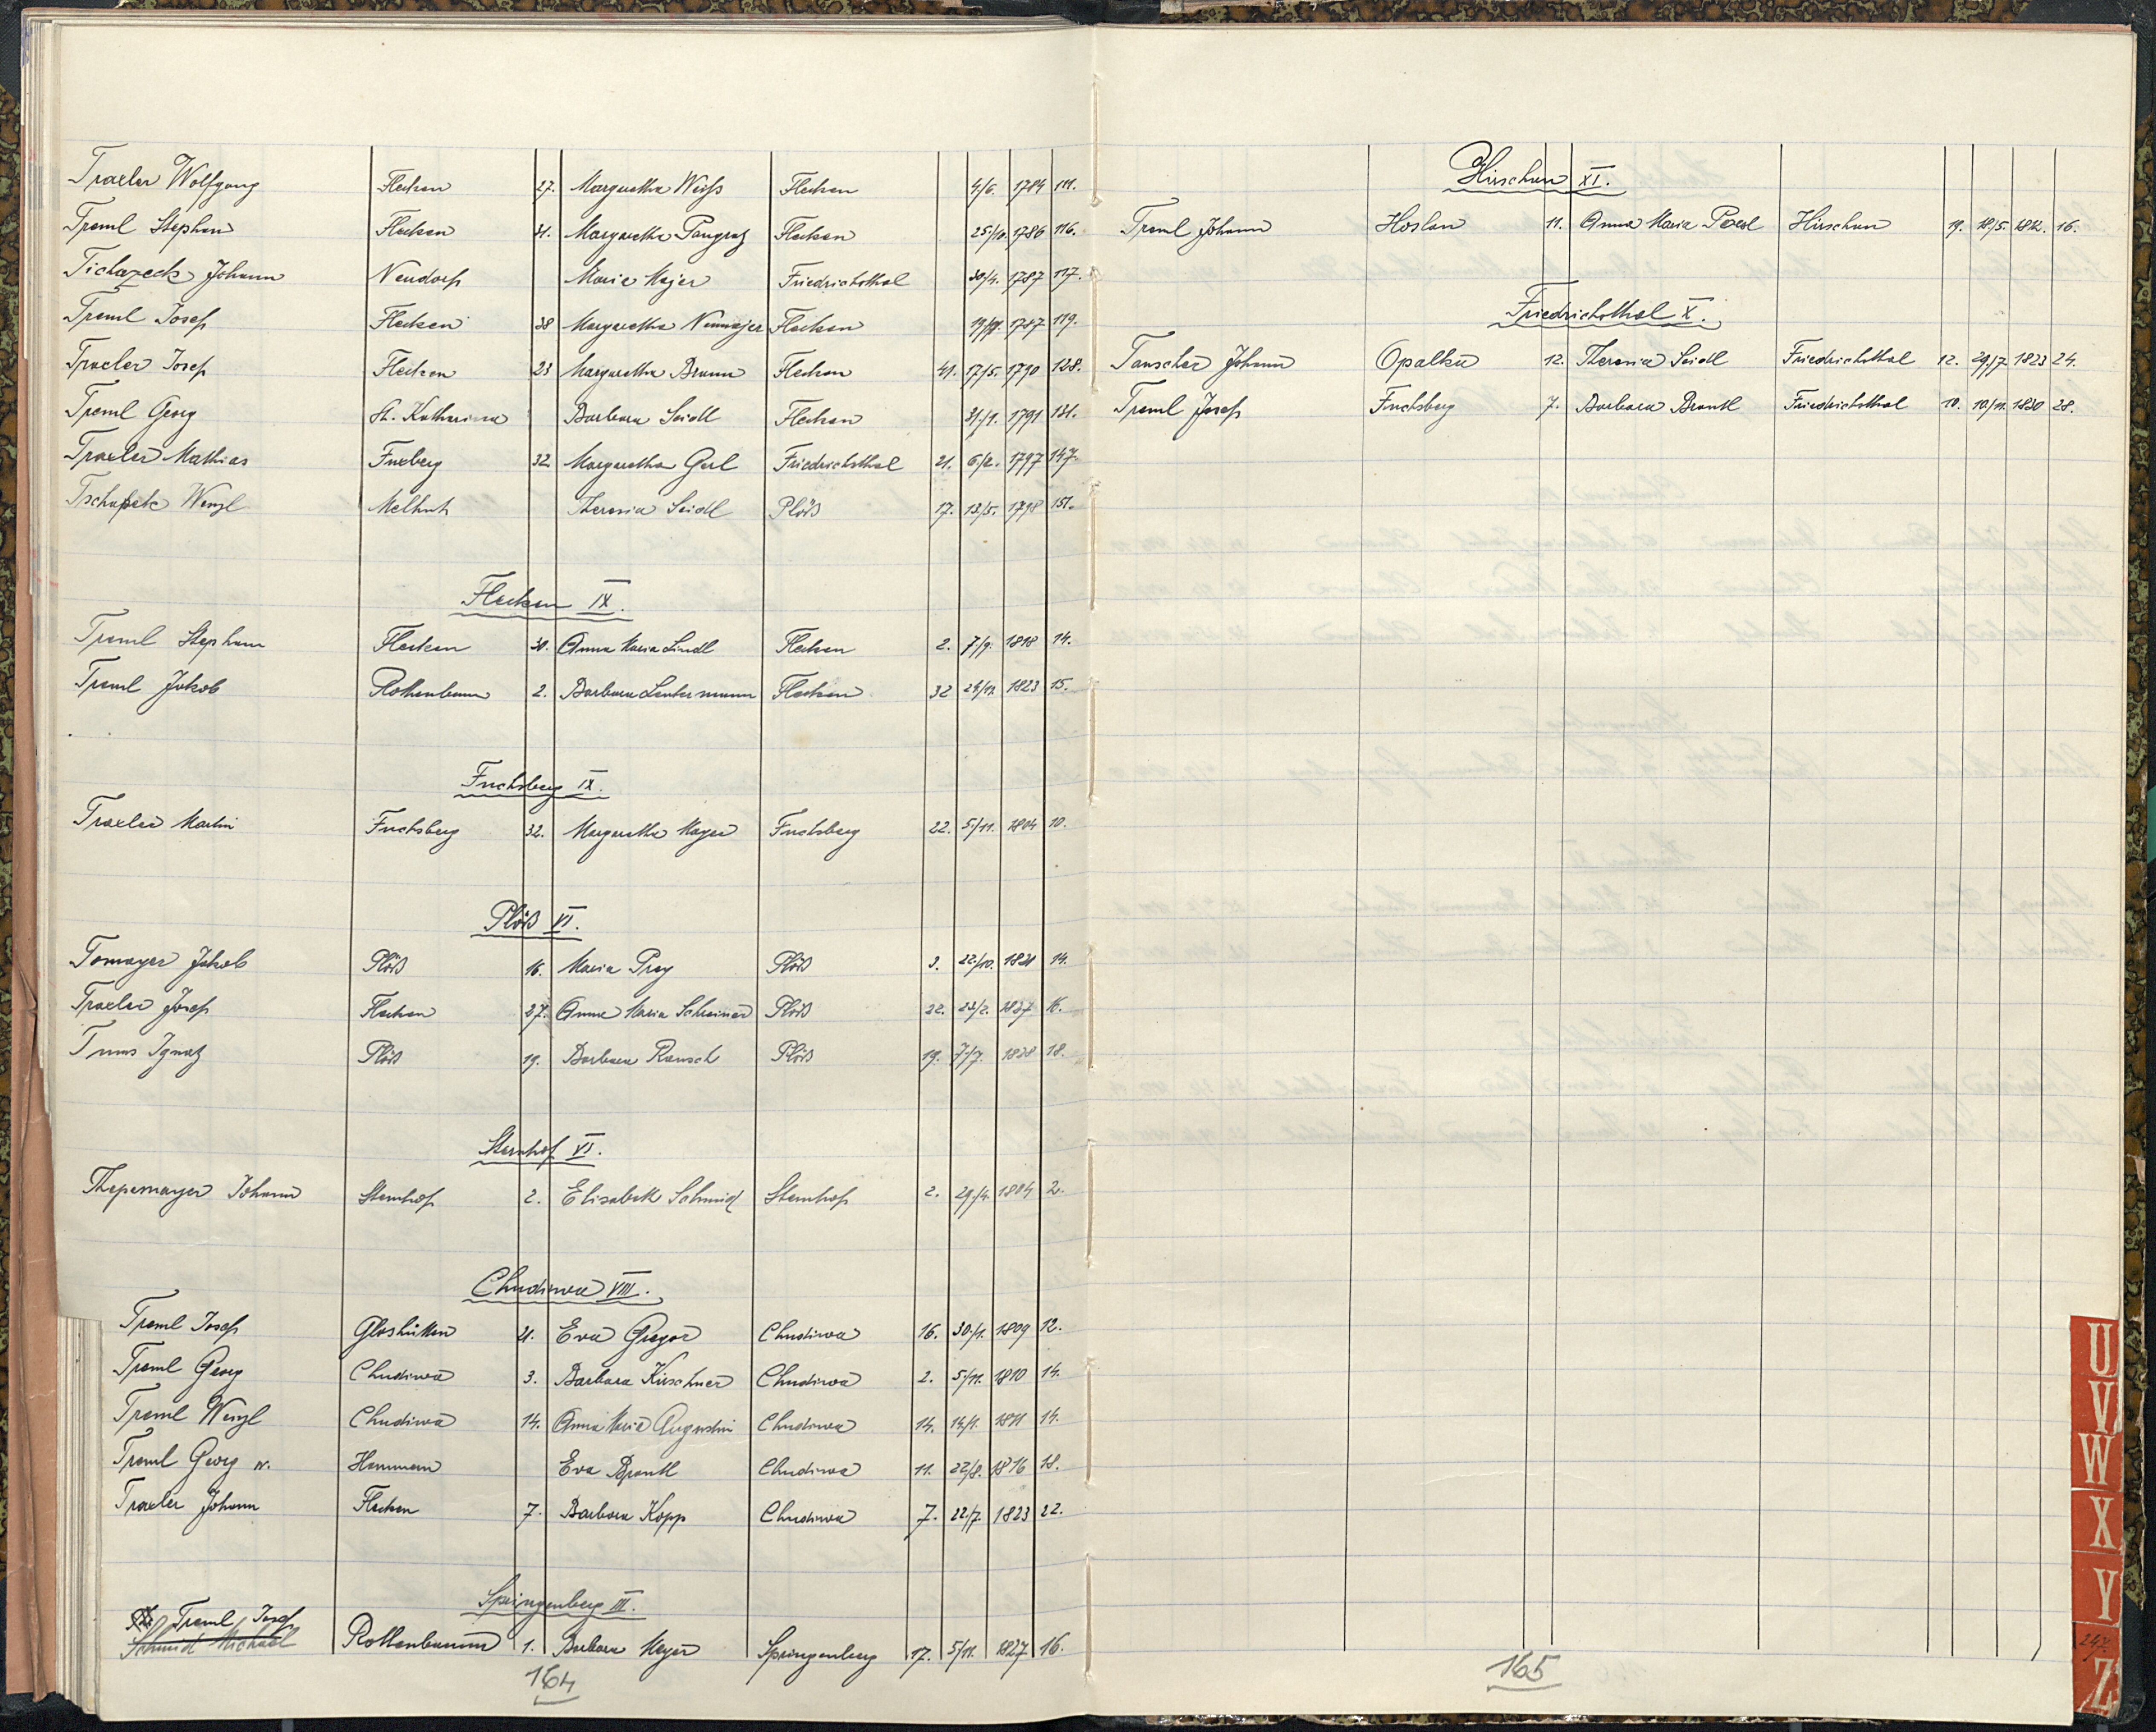 Traxler Wolfgang Flecken 27. Margaretha Weiß Flecken 4/6. 1784 111.
Treml Stephan Flecken 31. Margaretha Pangraz Flecken 25/10. 1786 116.
Tichazeck Johann Neudorf Marie Majer Friedrichsthal 30/4. 1787 117.
Treml Josef Flecken 38 Margaretha Neumajer Flecken 1787 119.
Traxler Josef Flecken 23 Margaretha Braun Flecken 41. 17/5. 1790 128.
Treml Georg St. Katharina Barbara Seidl Flecken 31/1. 1791 131.
Traxler Mathias Fuxberg 32 Margaretha Gerl Friedrichsthal 21. 6/2. 1797 147.
Wenzl Melhut Theresia Seidl Plöß 17. 13/5. 1798 151.
Flecken IX.
Treml Stephan Flecken 30. Anna Maria Lindl Flecken 2. 7/9. 1818 14.
Treml Jakob Rothenbaum 2. Barbara Lautermann Flecken 32 1823 15.
Fuchsberg IX.
Traxler Martin Fuchsberg 32. Margaretha Mayer Fuchsberg 22. 5/11. 1804 10.
Plöß VI.
Tomayer Jakob Plöß 16. Maria Prey Plöß 3. 22/10. 1821 14.
Traxler Josef Flecken 27. Anna Maria Schreiner Plöß 22. 23/2. 1827 16.
Tums Ignatz Plöß 19. Barbara Rausch Plöß 19. 7/7. 1828 18.
Sternhof VI.
Johann Sternhof 2. Elisabeth Schmid Sternhof 2. 29/4. 1804 2.
Chudiwa VIII.
Treml Josef Glashütten 21. Eva Gregor Chudiwa 16. 30/1. 1809 12.
Treml Georg Chudiwa 3. Barbara Kirschner Chudiwa 2. 5/11. 1810 14.
Treml Wenzl Chudiwa 14. Anna Maria Augustin Chudiwa 14. 14/1. 1811 14.
Treml Georg Hammern Eva Brantl Chudiwa 11. 22/8. 1816 18.
Traxler Johann Flecken 7. Barbara Kopp Chudiwa 7. 22/7. 1823 22.
Springenberg III.
Treml Josef
Schmid Michael Rothenbaum 1. Barbara Meyer Springenberg 17. 5/11. 1827 16.
164
Hirschau XI.
Treml Johann Hoslau 11. Anna Maria Hirschau 19. 18/5. 1812. 16.
Friedrichsthal X.
Tauscher Johann Opalka 12. Theresia Seidl Friedrichsthal 12. 29/7 1823 24.
Treml Josef Fuchsberg 7. Barbara Brantl Friedrichsthal 10. 10/11. 1830 28.
165
U
V
W
X
Y
247.
Z